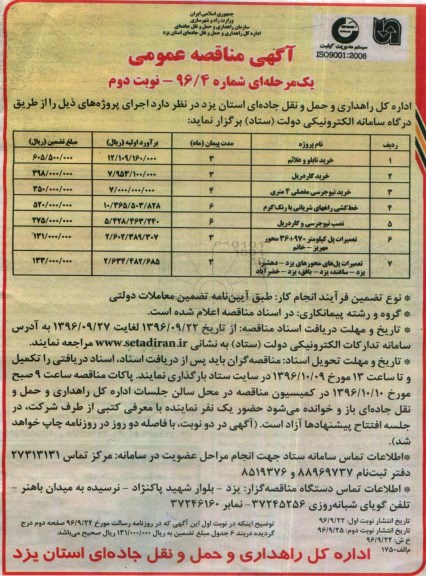 جمهوری اسلامی ایران
وزارت راه و شهرسازی
سازمان راهداری و حمل و نقل جاده‌ای
اداره کل راهداری و حمل و نقل جاده‌ای استان یزد
سیستم مدیریت کیفیت
ISO9001:2008
آگهی مناقصه عمومی
یک‌مرحله‌ای شماره ۹۶/۴ - نوبت دوم
اداره کل راهداری و حمل و نقل جاده‌ای استان یزد در نظر دارد اجرای پروژه‌های ذیل را از طریق
درگاه سامانه الکترونیکی دولت (ستاد) برگزار نماید:
ردیف نام پروژه مدت پیمان (ماه) برآورد اولیه (ریال) مبلغ تضمین (ریال)
۱ خرید تابلو و علائم ۳ ۱۲/۱۰۹/۱۶۰/۰۰۰ ۶۰۵/۵۰۰/۰۰۰
۲ خرید گاردریل ۳ ۷/۹۵۳/۱۰۰/۰۰۰ ۳۹۸/۰۰۰/۰۰۰
۳ خرید نیوجرسی مفصلی ۴ متری ۴ ۷/۰۰۰/۰۰۰/۰۰۰ ۳۵۰/۰۰۰/۰۰۰
۴ خط‌کشی راههای شریانی با رنگ گرم ۶ ۱۰/۳۶۵/۵۰۳/۸۲۸ ۵۲۰/۰۰۰/۰۰۰
۵ نصب نیوجرسی و گاردریل ۶ ۵/۴۲۸/۴۶۳/۲۴۰ ۲۷۵/۰۰۰/۰۰۰
۶ تعمیرات پل کیلومتر ۹۷۰+۳۶ محور مهریز - خاتم ۳ ۲/۶۰۲/۳۸۹/۳۰۷ ۱۳۱/۰۰۰/۰۰۰
۷ تعمیرات پل‌های محورهای یزد - دهشیر، یزد - ساغند، یزد - بافق، یزد - خضرآباد ۳ ۲/۶۳۴/۴۸۲/۶۸۵ ۱۳۳/۰۰۰/۰۰۰
* نوع تضمین فرآیند انجام کار: طبق آیین‌نامه تضمین معاملات دولتی
* گروه و رشته پیمانکاری: در اسناد مناقصه اعلام شده است.
* تاریخ و مهلت دریافت اسناد مناقصه: از تاریخ ۱۳۹۶/۰۹/۲۲ لغایت ۱۳۹۶/۰۹/۲۷ به آدرس
سامانه تدارکات الکترونیکی دولت (ستاد) به نشانی www.setadiran.ir مراجعه نمایند.
* تاریخ و مهلت تحویل اسناد: مناقصه‌گران باید پس از دریافت اسناد، اسناد دریافتی را تکمیل
و تا ساعت ۱۳ مورخ ۱۳۹۶/۱۰/۰۹ در سایت ستاد بارگذاری نمایند. پاکات مناقصه ساعت ۹ صبح
مورخ ۱۳۹۶/۱۰/۱۰ در کمیسیون مناقصه در محل سالن جلسات اداره کل راهداری و حمل و
نقل جاده‌ای باز و خوانده می‌شود حضور یک نفر نماینده با معرفی کتبی از طرف شرکت، در
جلسه افتتاح پیشنهادها آزاد است. (آگهی در دو نوبت، با فاصله دو روز در روزنامه چاپ خواهد
شد).
*اطلاعات تماس سامانه ستاد جهت انجام مراحل عضویت در سامانه: مرکز تماس ۲۷۳۱۳۱۳۱
دفتر ثبت‌نام ۸۸۹۶۹۷۳۷ و ۸۵۱۹۳۷۶
* اطلاعات تماس دستگاه مناقصه‌گزار: یزد - بلوار شهید پاکنژاد - نرسیده به میدان باهنر -
تلفن گویای شبانه‌روزی ۳۷۲۴۵۲۵۶- نمابر ۳۷۲۴۶۱۶۰
تاریخ انتشار نوبت اول: ۹۶/۹/۲۲
تاریخ انتشار نوبت دوم: ۹۶/۹/۲۵
خ ش: ۹۶/۹/۲۲
م‌الف: ۱۷۵۰
توضیح اینکه در نوبت اول این آگهی که در روزنامه رسالت مورخ ۹۶/۹/۲۲ صفحه دوم درج
گردیده در بند ۶ جدول مبلغ تضمین به ریال ۱۳۱/۰۰۰/۰۰۰ ریال صحیح می‌باشد
اداره کل راهداری و حمل و نقل جاده‌ای استان یزد